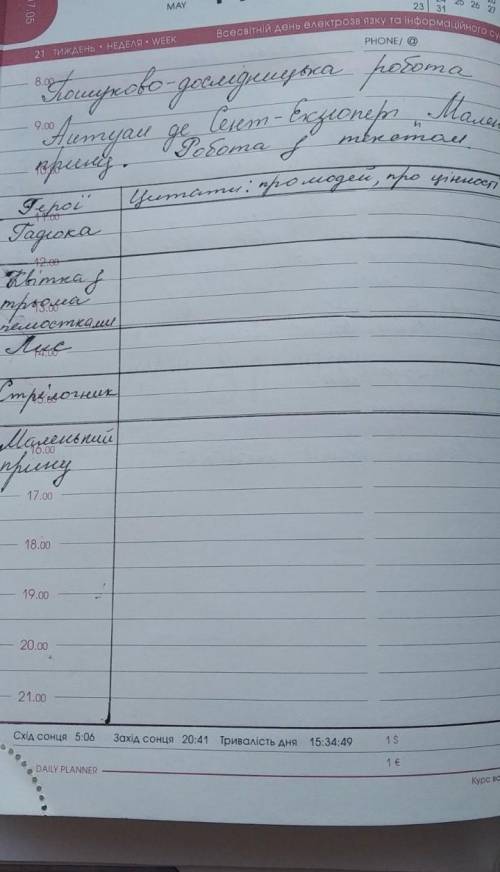 7.05
MAY
23 31
25 26 27
21 ТИЖДЕНЬ • НЕДЕЛЯ • WEEK
Всесвітній день електрозв'язку та інформаційного су
PHONE/ @
8.00 Пошуково-дослідницька робота
9.00 Антуан де Сент-Екзюпері „Мален
принц". Робота з текстом.
Герої
Цитати: про людей, про цінност
11.00
Гадюка
12.00
Квітка з
трьома
13.00
пелюстками
Лис
14.00
Стрілочник
Маленький
16.00
принц
17.00
18.00
19.00
20.00
21.00
Схід сонця 5:06 Захід сонця 20:41 Тривалість дня 15:34:49 1 $
1 €
DAILY PLANNER
Курс ва